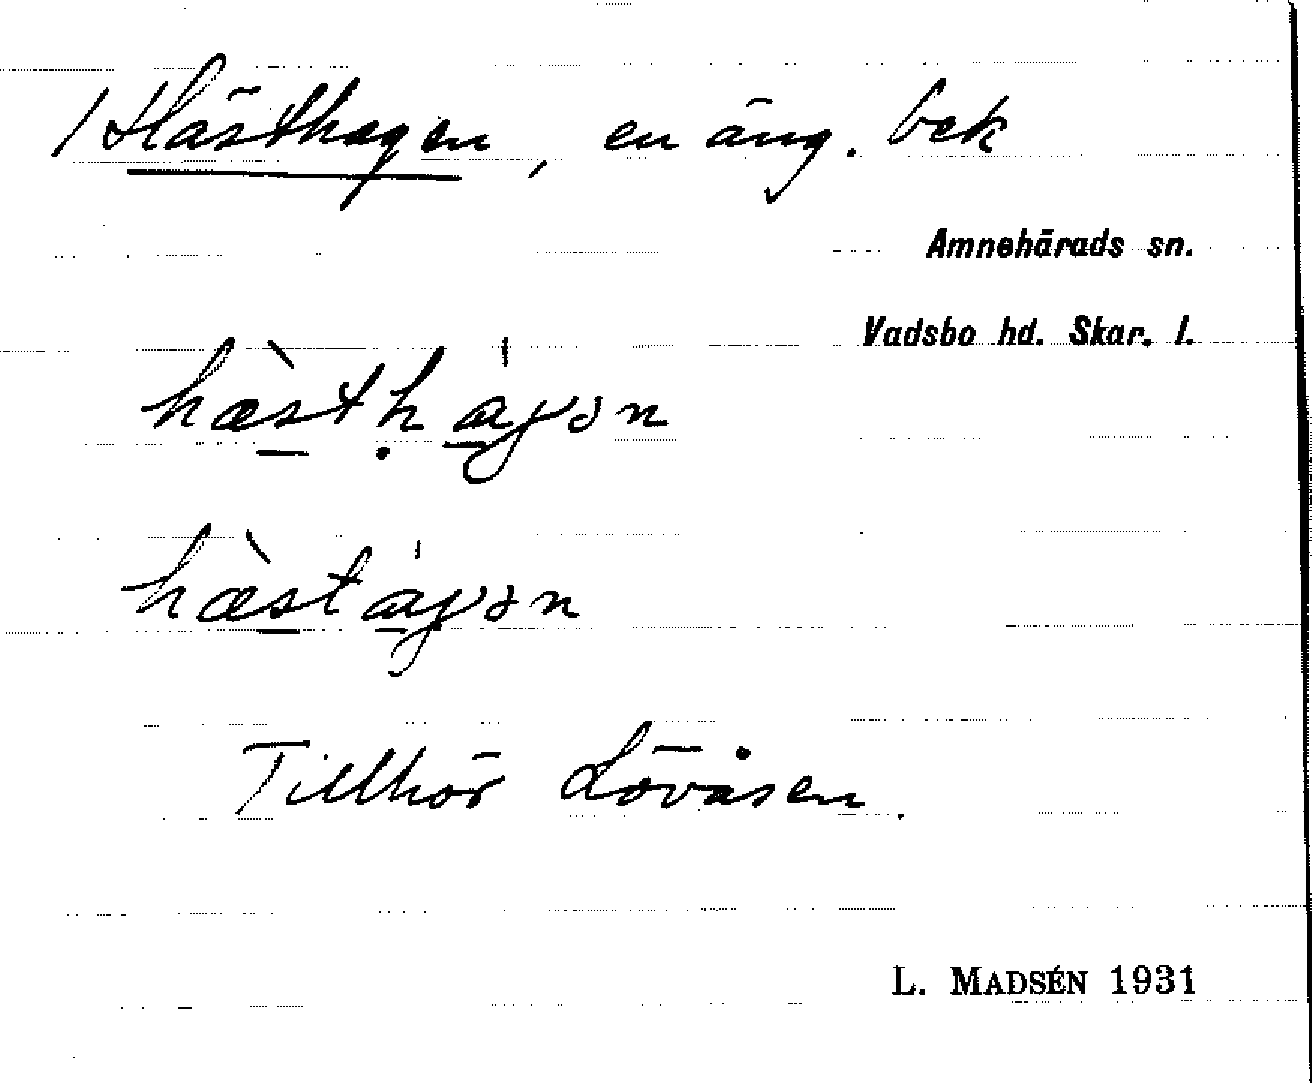 / Hästhagen, en äng. bek
Amnehärads sn.
Vadsbo hd. Skar. l.
hæ̀stḥáɡən
hæ̀stáɡən
Tillhör Lövåsen.
L. MADSÉN 1931